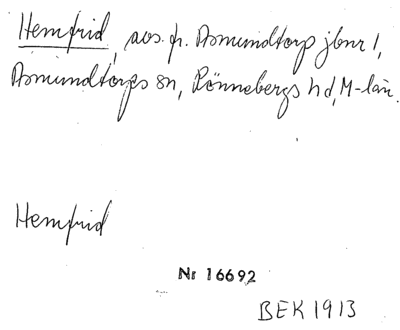 Hemfrid, avs. fr. Asmundtorp jbnr 1,
Asmundtorps sn, Rönnebergs hd, M-län.
Hemfrid
Nr 16692
BEK 1913